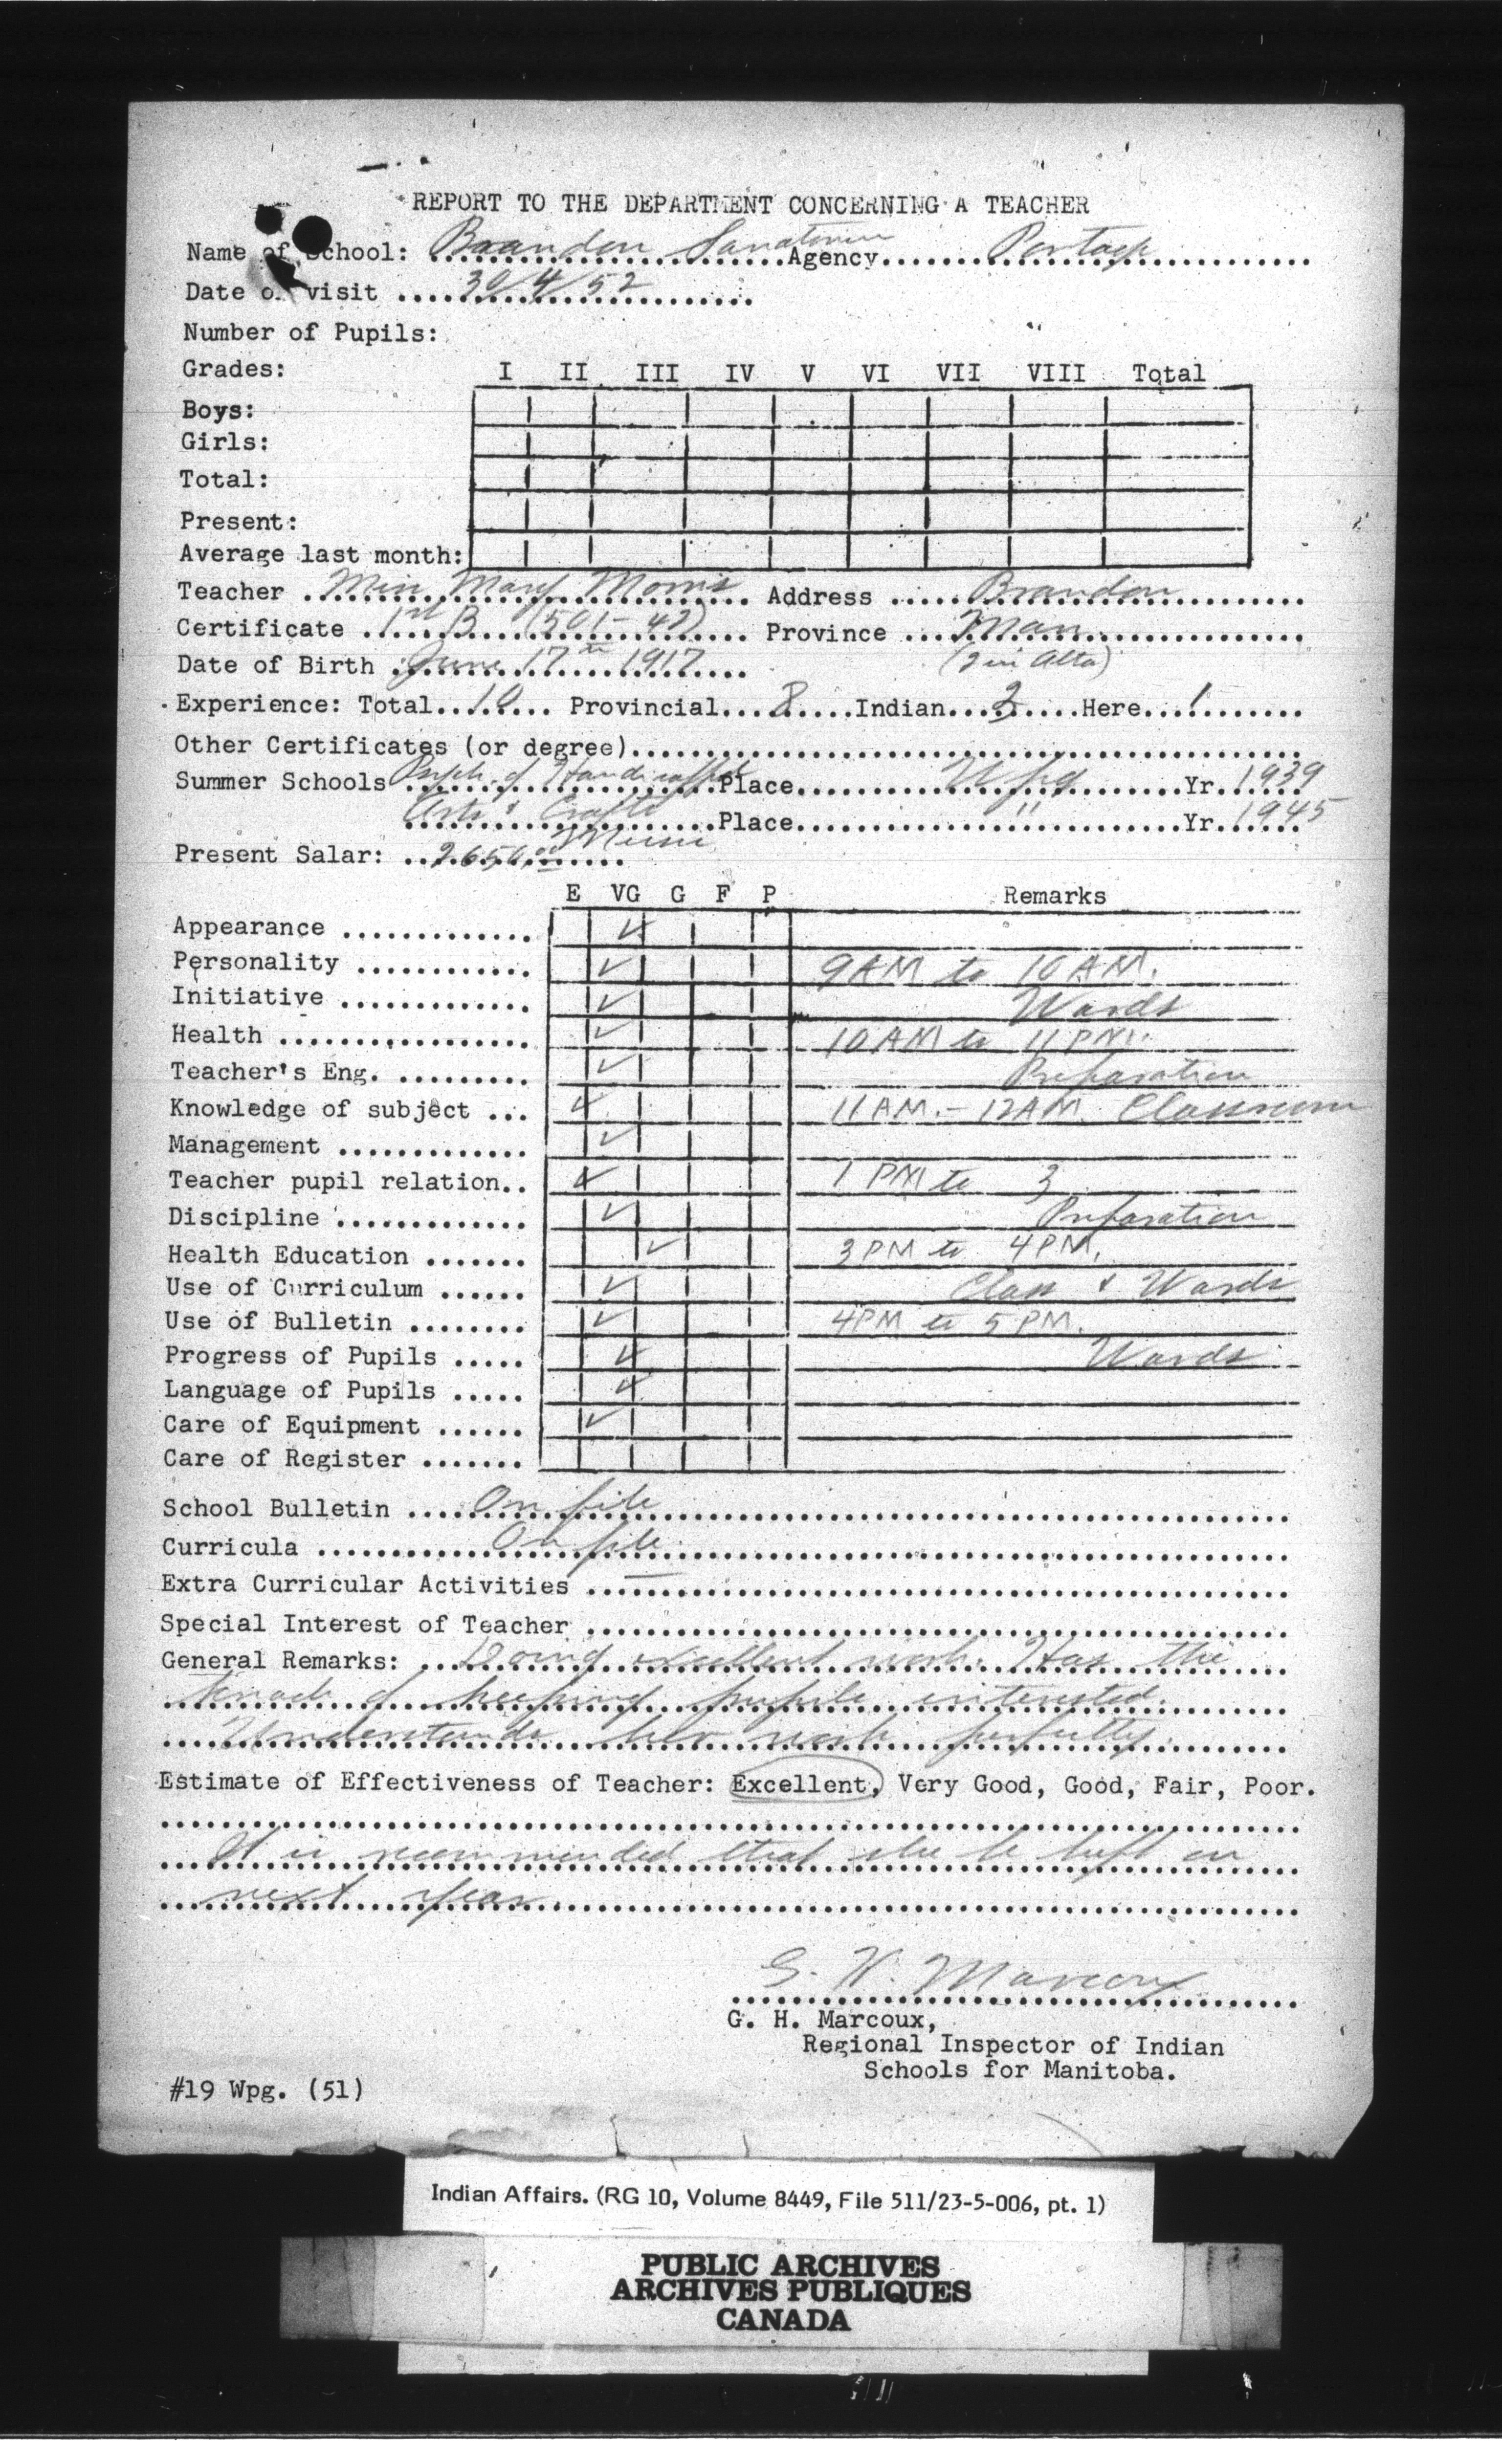 REPORT TO THE DEPARTMENT CONCERNING A TEACHER
Name of School: Brandon Sanatorium Agency Portage
Date of visit 30/4/52
Number of Pupils:
Grades: I II III IV V VI VII VIII Total
Boys:
Girls:
Total:
Present:
Average last month:
Teacher Miss Mary Morris Address Brandon
Certificate 1st B (501-42) Province Man.
Date of Birth June 17th 1917 (2 in Alta)
Experience: Total 10 Provincial 8 Indian 2 Here 1
Other Certificates (or degree)
Summer Schools Psych. of Handicapped Place Wpg Yr. 1939
Arts & Crafts Place " Yr. 1945
Music
Present Salar: 2650.00
E VG G F P Remarks
Appearance ✓
Personality ✓ 9 AM to 10 AM.
Initiative ✓ Wards
Health ✓ 10 AM to 11 PM.
Teacher's Eng. ✓ Preparation
Knowledge of subject ... ✓ 11 AM. - 12 AM. Classroom
Management ✓
Teacher pupil relation.. ✓ 1 PM to 3
Discipline ✓ Preparation
Health Education ✓ 3 PM to 4 PM.
Use of Curriculum ✓ Class & Wards
Use of Bulletin ✓ 4 PM to 5 PM.
Progress of Pupils ✓ Wards
Language of Pupils ✓
Care of Equipment ✓
Care of Register
School Bulletin On file
Curricula On file
Extra Curricular Activities —
Special Interest of Teacher
General Remarks: Doing excellent work. Has the
knack of keeping pupils interested.
Understands her work perfectly.
Estimate of Effectiveness of Teacher: Excellent, Very Good, Good, Fair, Poor.
It is recommended that she be left on
next year.
G. H. Marcoux
G. H. Marcoux,
Regional Inspector of Indian
Schools for Manitoba.
#19 Wpg. (51)
Indian Affairs. (RG 10, Volume 8449, File 511/23-5-006, pt. 1)
PUBLIC ARCHIVES
ARCHIVES PUBLIQUES
CANADA